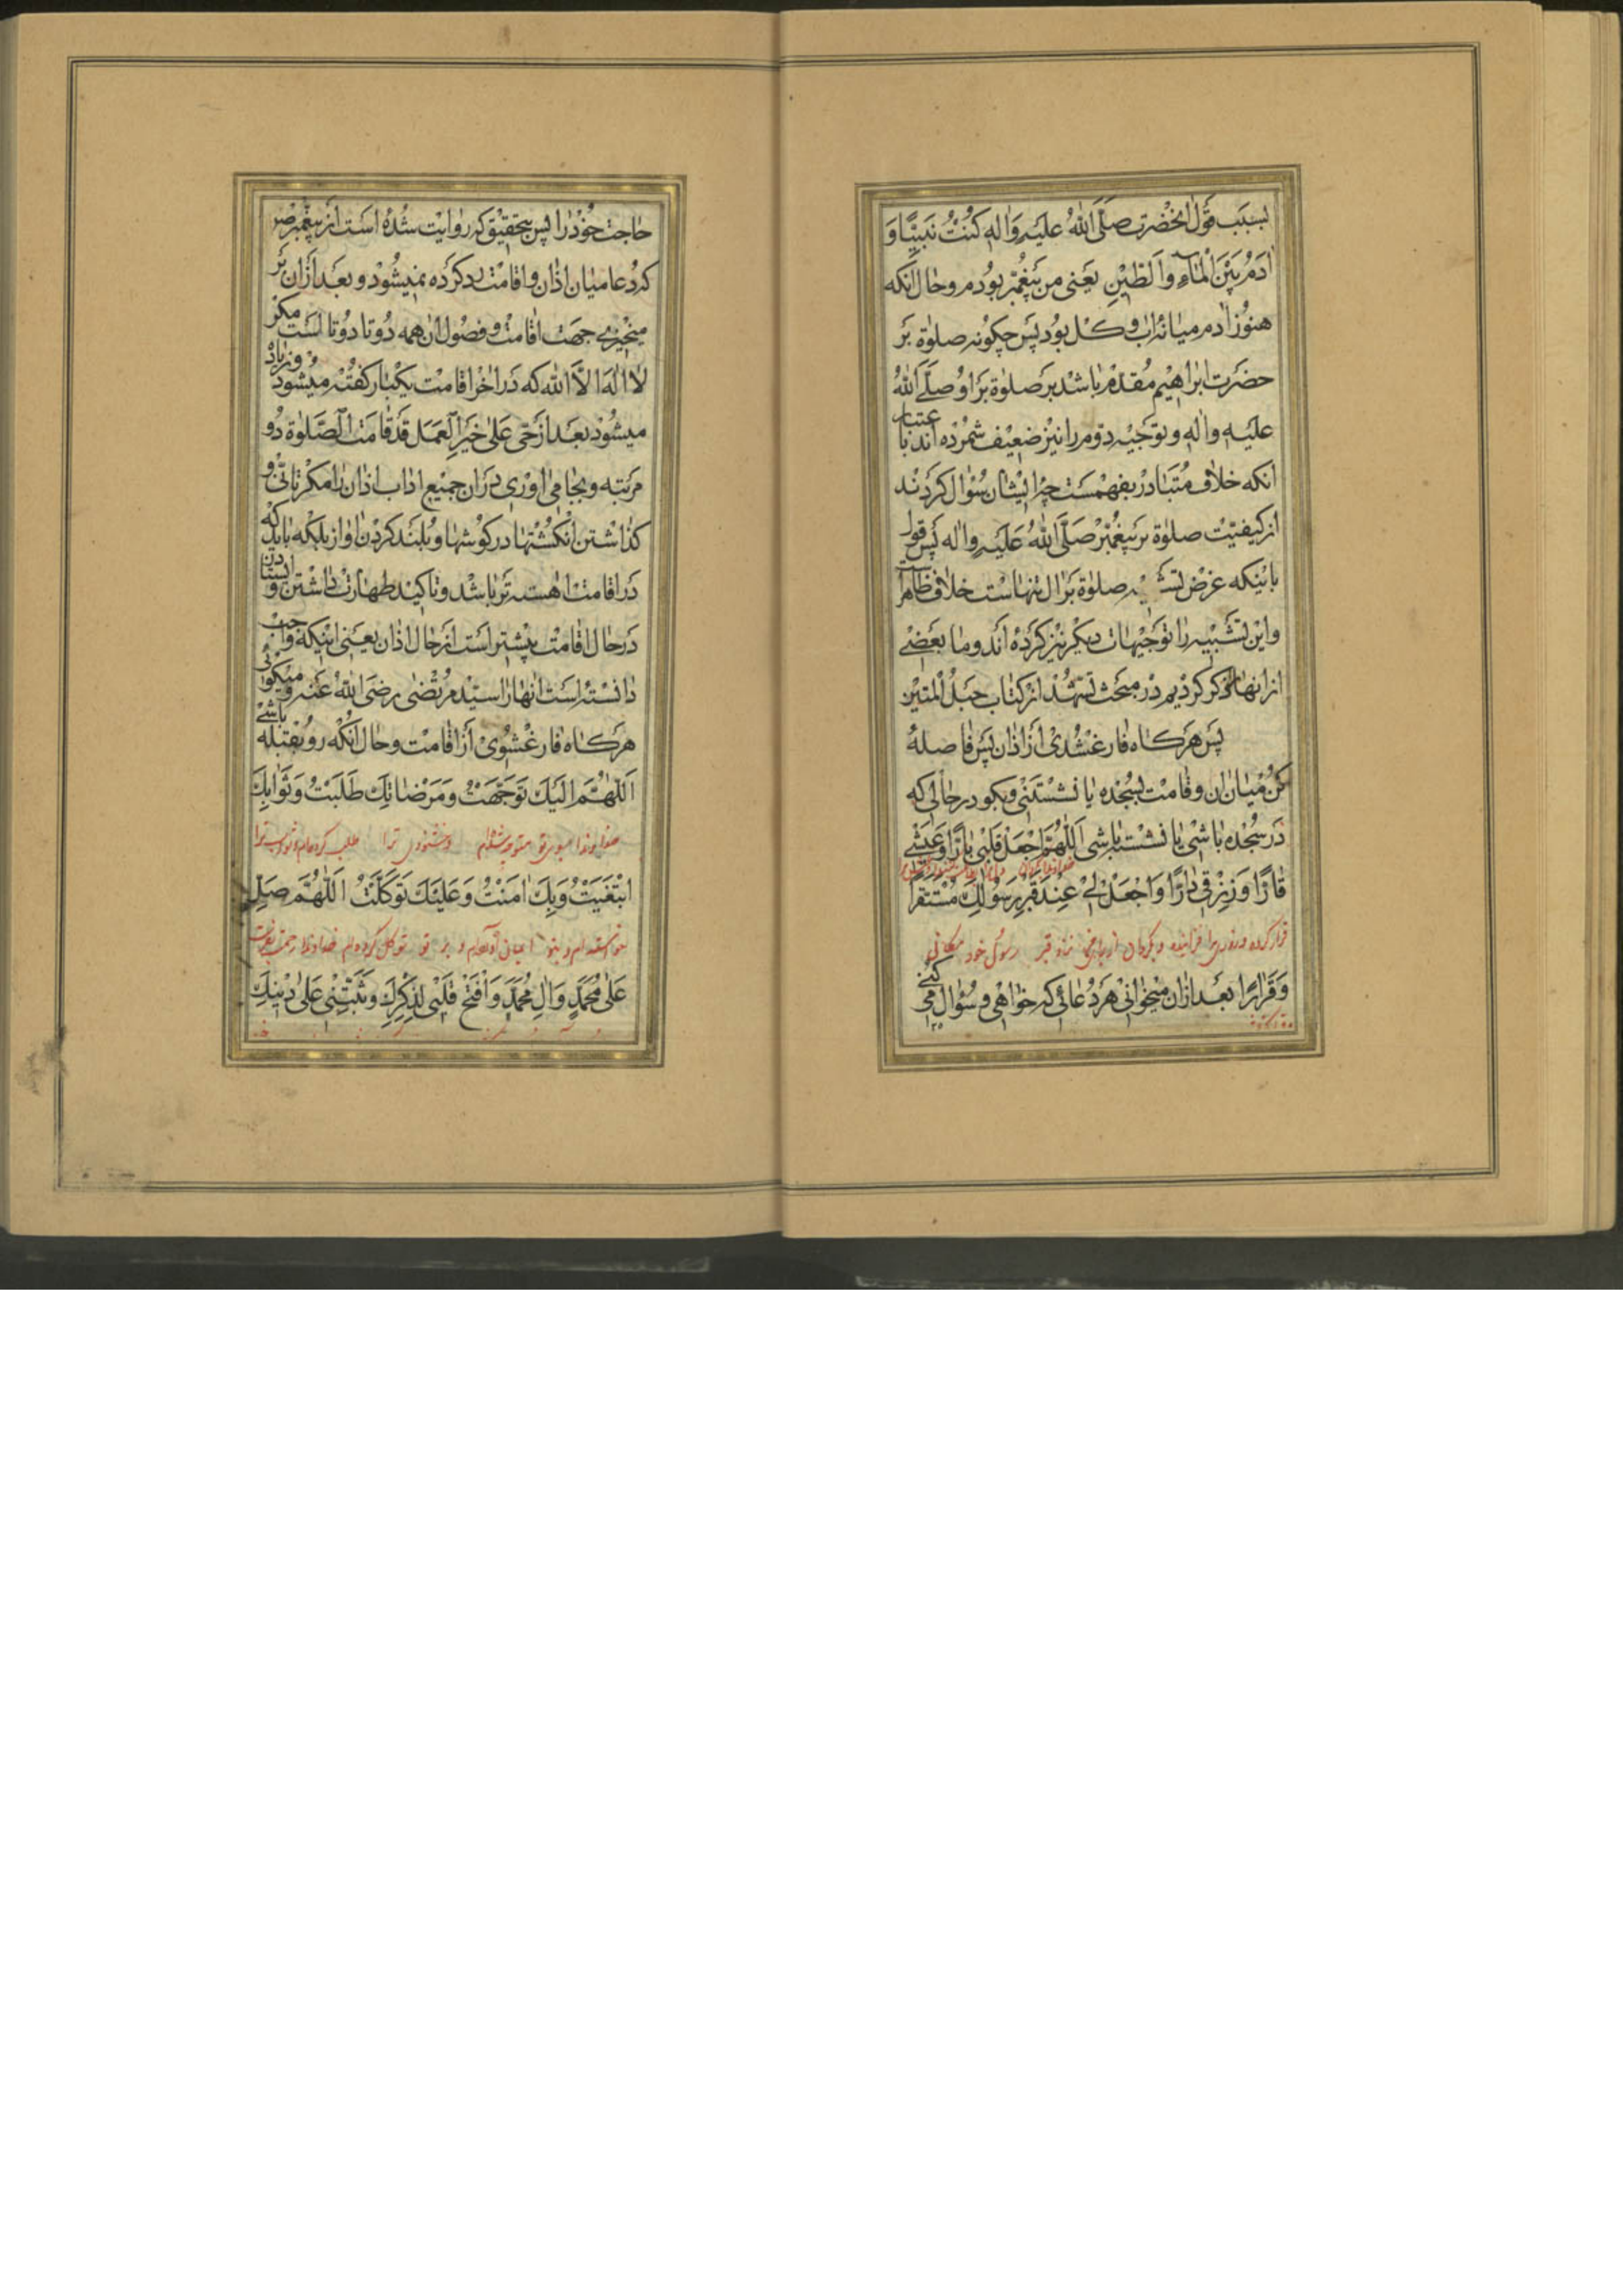 بسبب قول انحضرت صلی الله علیه واله کنت نبیا و
ادم بین الماء والطین یعنی من پیغمبر بودم وحال انکه
هنوز ادم میانه اب وکل بود پس چکونه صلوة بر
حضرت ابراهیم مقدم باشد بر صلوة بر او صلی الله
علیه واله وتوجیه دوم را نیز ضعیف شمرده اند باعتبار
انکه خلاف متبادر بفهمست چرا ایشان سؤال کردند
از کیفیت صلوة بر پیغمبر صلی الله علیه واله پس قول
باینکه غرض تشبیه صلوة بر ال تنها است خلاف ظاهر
واین تشبیه را توجیهات دیکر نیز کرده اند وما بعضی
از انها ذکر کردیم در مبحث تشهد از کتاب حبل المتین
پس هرکاه فارغ شدی از اذان پس فاصله
کن میان ان وقامت بسجده یا نشستنی وبکو در حالی که
در سجده باشی یا نشسته باشی اللهم اجعل قلبی بارا وعیشی
قارا ورزقی دارا واجعل لی عند قبر رسولک مستقرا
رسول خود مکانی
وقرارا بعد ازان میخوانی هر دعائی که خواهی وسؤال می کنی
حاجت خود را پس بتحقیق که روایت شده است از پیغمبر ص
که دعا میان اذان واقامت رد کرده نمیشود وبعد ازان بر
میخیزی جهت اقامت وفصول ان همه دوتا دوتا است مکر
لا اله الا الله که در اخر اقامت یکبار کفته میشود وزیاد
میشود بعد از حی علی خیر العمل قد قامت الصلوة دو
مرتبه وبجا می اوری در ان جمیع اداب اذان را مکر تانی و
کذاشتن انکشتها در کوشها وبلند کردن اواز بلکه باید که
در اقامت اهسته تر باشد وتاکید طهارت داشتن وایستادن
در حال اقامت بیشتر است از حال اذان یعنی اینکه واجب
دانسته است انها را سید مرتضی رضی الله عنه ومیکوئی
هرکاه فارغ شوی از اقامت وحال انکه رو بقبله باشی
اللهم الیک توجهت ومرضاتک طلبت وثوابک
خداوندا بسوی تو متوجه شده‌ام وخشنودی ترا طلب کرده‌ام وثواب ترا
ابتغیت وبک امنت وعلیک توکلت اللهم صل
ایمان آورده‌ام و بر تو توکل کرده‌ام خداوندا رحمت
علی محمد وال محمد وافتح قلبی لذکرک وثبتنی علی دینک